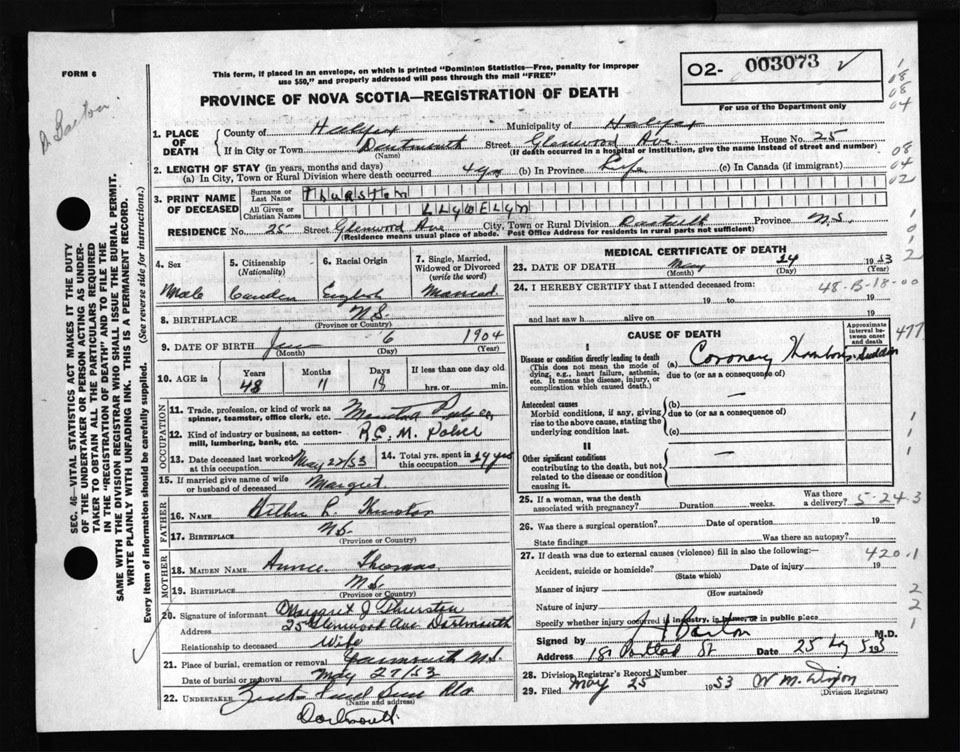 FORM 6
This form, if placed in an envelope, on which is printed "Dominion Statistics—Free, penalty for improper
use $50," and properly addressed will pass through the mail "FREE"
02- 003073
For use of the Department only
PROVINCE OF NOVA SCOTIA—REGISTRATION OF DEATH
1. PLACE OF DEATH
County of Halifax Municipality of Halifax
If in City or Town Dartmouth Street Glenwood Ave House No. 25
(Name) (If death occurred in a hospital or institution, give the name instead of street and number)
2. LENGTH OF STAY (in years, months and days)
(a) In City, Town or Rural Division where death occurred 4 yrs (b) In Province Life (c) In Canada (if immigrant)
3. PRINT NAME OF DECEASED
Surname or Last Name Thurston
All Given or Christian Names LLyWELyn
RESIDENCE No. 25 Street Glenwood Ave City, Town or Rural Division Province N.S.
(Residence means usual place of abode. Post Office Address for residents in rural parts not sufficient)
SEC. 46—VITAL STATISTICS ACT MAKES IT THE DUTY
OF THE UNDERTAKER OR PERSON ACTING AS UNDER-
TAKER TO OBTAIN ALL THE PARTICULARS REQUIRED
IN THE "REGISTRATION OF DEATH" AND TO FILE THE
SAME WITH THE DIVISION REGISTRAR WHO SHALL ISSUE THE BURIAL PERMIT.
WRITE PLAINLY WITH UNFADING INK. THIS IS A PERMANENT RECORD.
Every item of information should be carefully supplied. (See reverse side for instructions.)
4. Sex
Male
5. Citizenship (Nationality)
6. Racial Origin
English
7. Single, Married, Widowed or Divorced (write the word)
Married
8. BIRTHPLACE N.S.
(Province or Country)
9. DATE OF BIRTH 6 1904
(Month) (Day) (Year)
10. AGE in Years Months Days If less than one day old
48 11 18 hrs. or min.
OCCUPATION
11. Trade, profession, or kind of work as
spinner, teamster, office clerk, etc.
12. Kind of industry or business, as cotton-
mill, lumbering, bank, etc. R.C.M. Police
13. Date deceased last worked
at this occupation May 22/53
14. Total yrs. spent in
this occupation 24 yrs
15. If married give name of wife
or husband of deceased Margret
FATHER
16. NAME Arthur L. Thurston
17. BIRTHPLACE N.S.
(Province or Country)
MOTHER
18. MAIDEN NAME Annie Thomas
19. BIRTHPLACE N.S.
(Province or Country)
20. Signature of informant Margaret J Thurston
Address 25 Glenwood Ave Dartmouth
Relationship to deceased Wife
21. Place of burial, cremation or removal Yarmouth N.S.
Date of burial or removal May 27/53
22. UNDERTAKER
(Name and address)
Dartmouth.
MEDICAL CERTIFICATE OF DEATH
23. DATE OF DEATH May 24 1953
(Month) (Day) (Year)
24. I HEREBY CERTIFY that I attended deceased from:
48-B-18-00
19 to 19
and last saw h alive on 19
CAUSE OF DEATH
Approximate interval between onset and death
I
Disease or condition directly leading to death
(This does not mean the mode of
dying, e.g., heart failure, asthenia,
etc. It means the disease, injury, or
complication which caused death.)
(a) Coronary Thrombosis Sudden
due to (or as a consequence of)
Antecedent causes
Morbid conditions, if any, giving
rise to the above cause, stating the
underlying condition last.
(b) —
due to (or as a consequence of)
(c)
II
Other significant conditions
contributing to the death, but not
related to the disease or condition
causing it.
—
25. If a woman, was the death
associated with pregnancy? Duration weeks. Was there a delivery?
5-24-3
26. Was there a surgical operation? Date of operation 19
State findings Was there an autopsy?
27. If death was due to external causes (violence) fill in also the following:
420.1
Accident, suicide or homicide? Date of injury 19
(State which)
Manner of injury
(How sustained)
Nature of injury
Specify whether injury occurred in industry, in home, or in public place
Signed by M.D.
Address Date 25
28. Division Registrar's Record Number
29. Filed May 25 1953 W. M. Dixon
(Division Registrar)
1
08
08
04
08
04
02
1
0
1
2
477
1
1
1
2
2
1